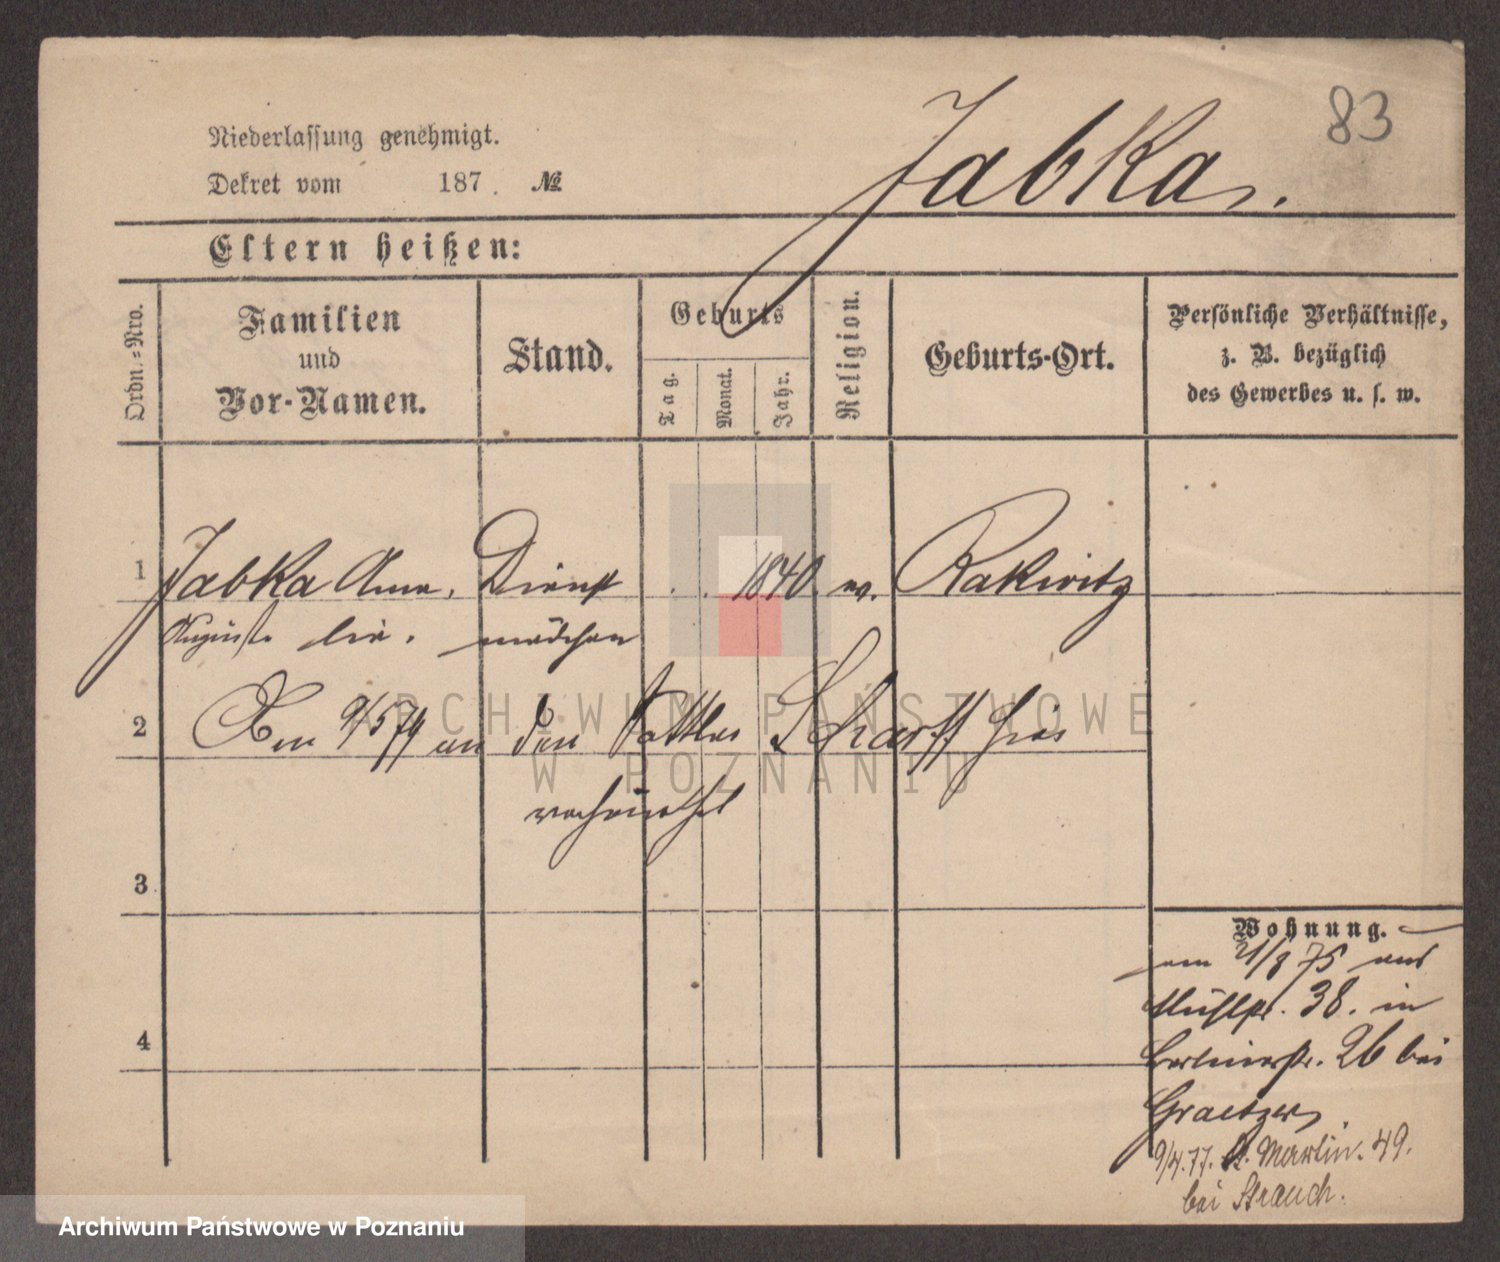 83
Jabka.
Niederlassung genehmigt.
Dekret vom 187 . №
Eltern heißen:
Ordn.=Nro.
Familien
und
Vor-Namen.
Stand.
Geburts
Tag.
Monat.
Jahr.
Religion.
Geburts-Ort.
Persönliche Verhältnisse,
z. B. bezüglich
des Gewerbes u. s. w.
1 Jabka Anna, Dienst . . 1840. ev. Rakwitz
Auguste mädchen
2 Am 9/5 79 an den Sattler Scharff hier
verheirathet
3
4
Wohnung.
am 21/8 75 aus
Mühlstr. 38. in
Berlinerstr. 26 bei
Graetzer
9/4.77. St. Martin. 49.
bei Strauch.
ARCHIWUM PAŃSTWOWE
W POZNANIU
Archiwum Państwowe w Poznaniu